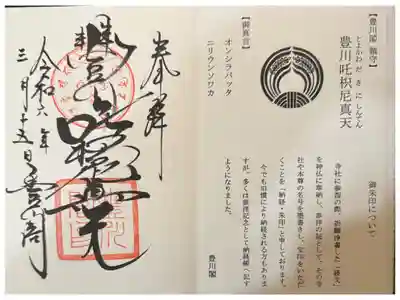 奉拝
豊川吒枳尼真天
令和六年
三月十五日
豊川閣
【豊川閣 鎮守】
とよかわ だ き に しんてん
豊川吒枳尼真天
【御真言】
オンシラバッタ
ニリウンソワカ
御朱印について
寺社に参拝の際、祈願浄書した「経文」
を神仏に奉納し、参拝の証として、その寺
社や本尊の名号を墨書きし、宝印をいただ
くことを「納経・朱印」と申しております。
今でも旧慣により納経される方もありま
すが、多くは参拝記念として納経帳へ記す
ようになりました。
豊川閣